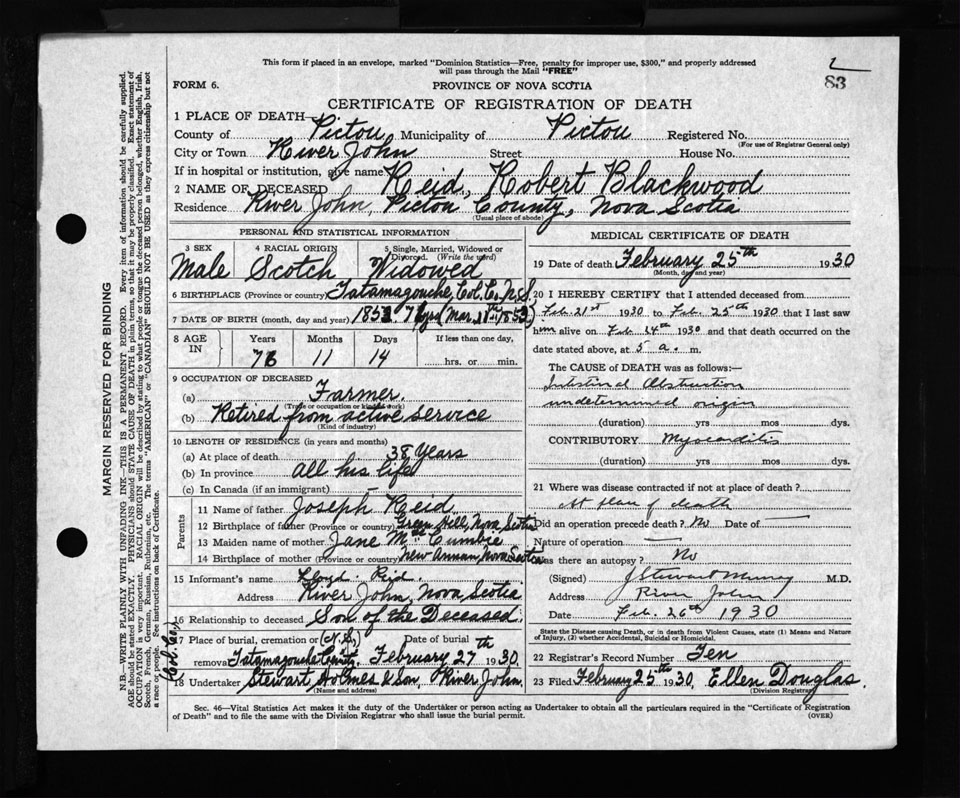 This form if placed in an envelope, marked "Dominion Statistics—Free, penalty for improper use, $300," and properly addressed
will pass through the Mail "FREE"
2
83
FORM 6.
PROVINCE OF NOVA SCOTIA
CERTIFICATE OF REGISTRATION OF DEATH
1 PLACE OF DEATH—
County of Pictou Municipality of Pictou Registered No.
(For use of Registrar General only)
City or Town River John Street House No.
If in hospital or institution, give name
2 NAME OF DECEASED Reid, Robert Blackwood
Residence River John, Pictou County, Nova Scotia
(Usual place of abode)
PERSONAL AND STATISTICAL INFORMATION
3 SEX 4 RACIAL ORIGIN 5 Single, Married, Widowed or Divorced. (Write the word)
Male Scotch Widowed
6 BIRTHPLACE (Province or country) Tatamagouche, Col. Co., N.S.
7 DATE OF BIRTH (month, day and year) 1853 (Mar. 11th 1853)
8 AGE IN Years Months Days If less than one day,
76 11 14 hrs. or min.
9 OCCUPATION OF DECEASED
(a) Farmer.
(Trade or occupation or kind of work)
(b) Retired from active service
(Kind of industry)
10 LENGTH OF RESIDENCE (in years and months)
(a) At place of death 38 Years
(b) In province All his life
(c) In Canada (if an immigrant) —
Parents
11 Name of father Joseph Reid.
12 Birthplace of father (Province or country) Green Hill, Nova Scotia
13 Maiden name of mother Jane Mc Cumbie
14 Birthplace of mother (Province or country) New Annan, Nova Scotia
15 Informant's name Lloyd Reid.
Address River John, Nova Scotia
16 Relationship to deceased Son of the Deceased.
17 Place of burial, cremation or removal Tatamagouche (N.S.) Date of burial February 27th 1930
(Col. Co.)
18 Undertaker Stewart, Holmes & Son, River John.
(Name and address)
MEDICAL CERTIFICATE OF DEATH
19 Date of death February 25th 1930
(Month, day and year)
20 I HEREBY CERTIFY that I attended deceased from
Feb. 21st 1930 to Feb. 25th 1930 that I last saw
him alive on Feb. 24th 1930 and that death occurred on the
date stated above, at 5 a. m.
The CAUSE of DEATH was as follows:—
Intestinal Obstruction
undetermined origin
(duration) yrs mos dys.
CONTRIBUTORY Myocarditis
(duration) yrs. mos. dys.
21 Where was disease contracted if not at place of death?
At place of death
Did an operation precede death? No Date of —
Nature of operation —
Was there an autopsy? No
(Signed) J Stewart Murray M.D.
Address River John
Date Feb. 26th 1930
State the Disease causing Death, or in death from Violent Causes, state (1) Means and Nature
of Injury, (2) whether Accidental, Suicidal or Homicidal.
22 Registrar's Record Number Ten
23 Filed February 25th 1930, Ellen Douglas
(Division Registrar)
Sec. 46—Vital Statistics Act makes it the duty of the Undertaker or person acting as Undertaker to obtain all the particulars required in the "Certificate of Registration
of Death" and to file the same with the Division Registrar who shall issue the burial permit.
(OVER)
MARGIN RESERVED FOR BINDING
N.B.—WRITE PLAINLY WITH UNFADING INK—THIS IS A PERMANENT RECORD. Every item of information should be carefully supplied.
AGE should be stated EXACTLY. PHYSICIANS should STATE CAUSE OF DEATH in plain terms, so that it may be properly classified. Exact statement of
OCCUPATION is very important. RACIAL ORIGIN will be described by stating to what people or tongue the deceased person belonged, whether English, Irish,
Scotch, French, German, Russian, Ruthenian, etc. The terms "AMERICAN" or "CANADIAN" SHOULD NOT BE USED as they express citizenship but not
a race or people. See instructions on back of Certificate.